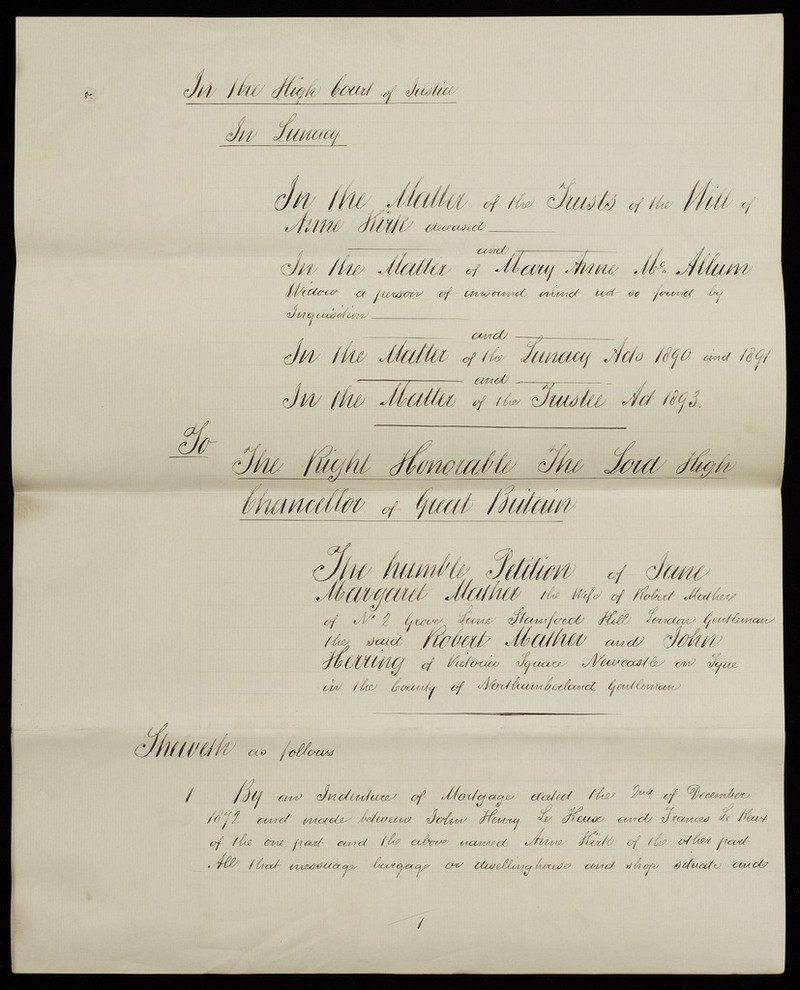 In the High Court of Justice
In Lunacy
In the Matter of the Trusts of the Will of
Anne Kirk deceased
and
In the Matter of Mary Anne Mc. Allum
Widow a person of unsound mind not so found by
Inquisition
and
In the Matter of the Lunacy Acts 1890 and 1891
and
In the Matter of the Trustee Act 1893.
To
The Right Honorable The Lord High
Chancellor of Great Britain
The humble Petition of Jane
Margaret Mather the Wife of Robert Mather
of No 2 Grove Lane Stamford Hill London Gentleman
the said Robert Mather and John
Herring of Victoria Square Newcastle on Tyne
in the County of Northumberland Gentleman
Sheweth as follows
1 By an Indenture of Mortgage dated the 2nd of December
1872 and made between John Henry Le Heux and Frances Le Heux
of the one part and the above named Anne Kirk of the other part
All that messuage burgage or dwellinghouse and shop situate and
1